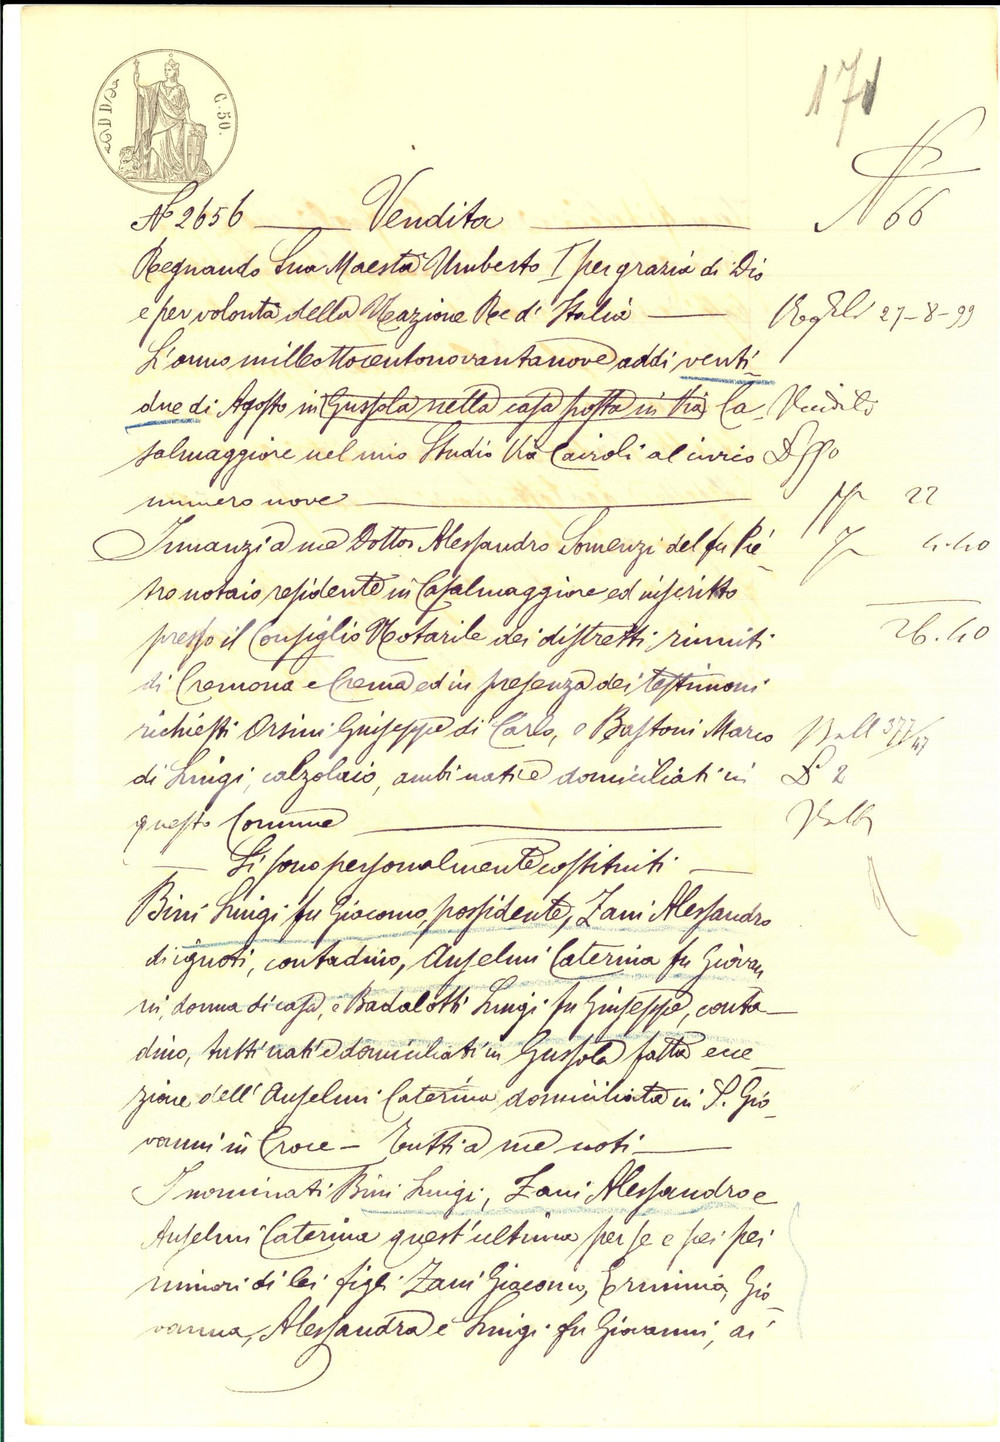 171
C. 50.
N° 66
N° 2656 Vendita
Regnando Sua Maestà Umberto I per grazia di Dio
e per volontà della Nazione Re d'Italia
27-8-99
L'anno milleottocentonovantanove addi venti
due di Agosto in (Gussola nella casa posta in Via) Ca-
salmaggiore nel mio Studio Via Cairoli al civico
numero nove
22
Innanzi a me Dottor Alessandro Somenzi del fu Pie-
4.40
tro notaio residente in Casalmaggiore ed inscritto
presso il Consiglio Notarile dei distretti riuniti
26.40
di Cremona e Crema ed in presenza dei testimoni
richiesti Orsini Giuseppe di Carlo, e Bastoni Marco
377/47
di Luigi, calzolaio, ambi nati e domiciliati in
2
questo Comune
Si sono personalmente costituiti
Bini Luigi fu Giacomo, possidente, Zani Alessandro
di ignoti, contadino, Anselmi Caterina fu Giovan
ni, donna di casa, e Badalotti Luigi fu Giuseppe, conta-
dino, tutti nati e domiciliati in Gussola fatta ecce-
zione dell'Anselmi Caterina domiciliata in S. Gio-
vanni in Croce - Tutti a me noti
I nominati Bini Luigi, Zani Alessandro e
Anselmi Caterina quest'ultima per se e pei pei
minori di lei figli Zani Giacomo, Erminia, Gio-
vanna, Alessandra e Luigi fu Giovanni, ai